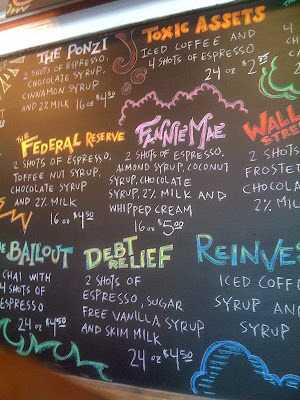 THE PONZI
2 SHOTS OF ESPRESSO,
CHOCOLATE SYRUP,
CINNAMON SYRUP
AND 2% MILK
16 oz $4.50
TOXIC ASSETS
ICED COFFEE AND
4 SHOTS OF ESPRESSO
24 oz $2.75
4
THE FEDERAL RESERVE
2 SHOTS OF ESPRESSO,
TOFFEE NUT SYRUP,
CHOCOLATE SYRUP
AND 2% MILK
16 oz $4.50
FANNIE MAE
2 SHOTS OF ESPRESSO,
ALMOND SYRUP, COCONUT
SYRUP, CHOCOLATE
SYRUP, 2% MILK AND
WHIPPED CREAM
16 oz $5.00
WALL
STRE
2 SHOTS
FROSTED
CHOCOLA
2% MIL
BAILOUT
CHAI WITH
4 SHOTS OF
ESPRESSO
24 oz $4.50
DEBT
RELIEF
2 SHOTS OF
ESPRESSO, SUGAR
FREE VANILLA SYRUP
AND SKIM MILK
24 oz $4.50
REINVES
ICED COFF
SYRUP AND
SYRUP